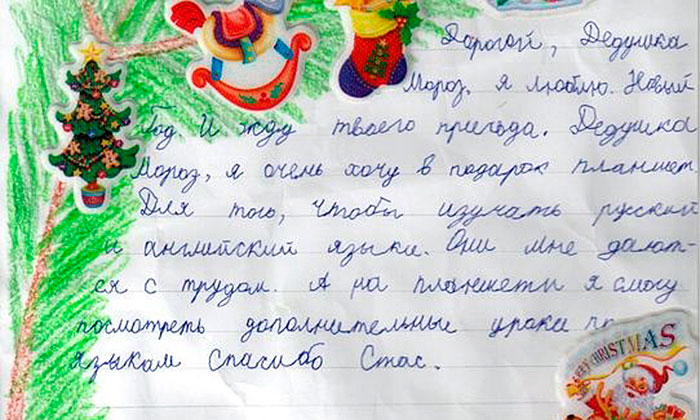 Дорогой, Дедушка
Мороз. я люблю. Новый
Год И жду твоего приезда. Дедушка
Мороз, я очень хочу в подарок планшет
Для того, чтобы изучать русский
и английский языки. Они мне дают-
ся с трудом. А на планшеты я смогу
посмотреть дополнительные уроки по
языкам спасибо Стас.
MERRY CHRISTMAS